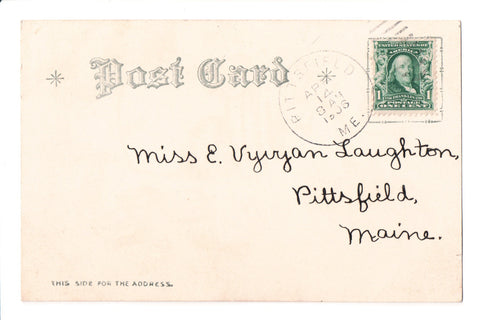 * Post Card *
PITTSFIELD
APR
14
8 AM
1906
ME.
UNITED STATES OF AMERICA
1 1
POSTAGE
ONE CENT
Miss E. Vyvyan Laughton,
Pittsfield,
Maine.
THIS SIDE FOR THE ADDRESS.